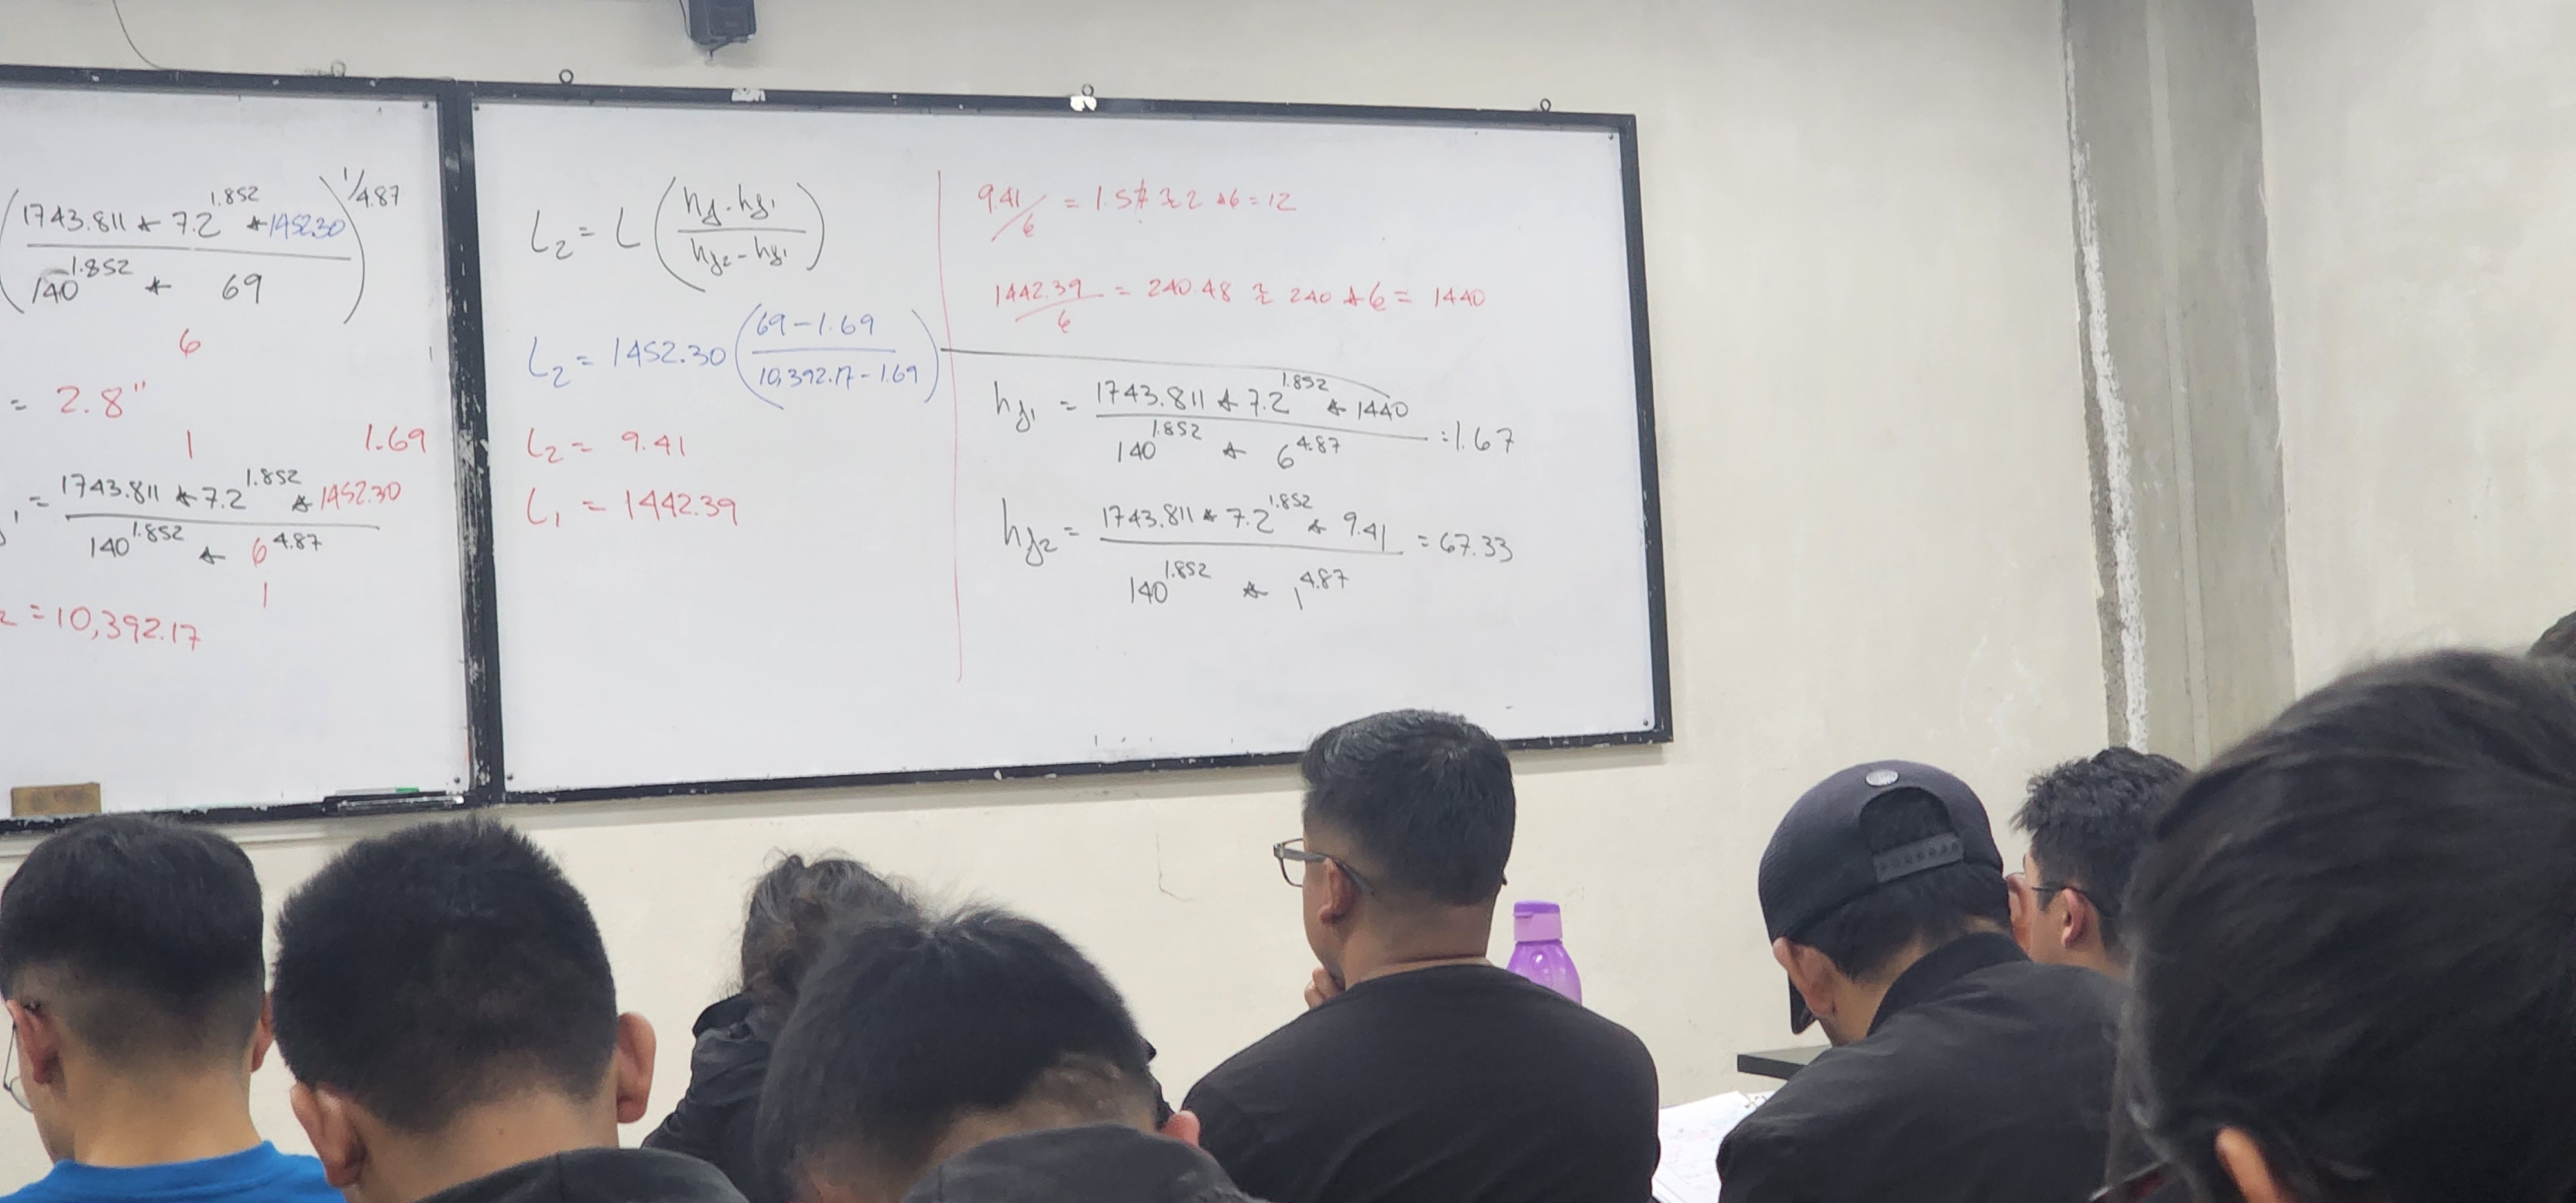 (1743.811 * 7.2^1.852 * 1452.30 / 140^1.852 * 69)^1/4.87
6
= 2.8"
1 1.69
1 = 1743.811 * 7.2^1.852 * 1452.30 / 140^1.852 * 6^4.87
1
2 = 10,392.17
L2 = L (hf - hf1 / hf2 - hf1)
L2 = 1452.30 (69 - 1.69 / 10,392.17 - 1.69)
L2 = 9.41
L1 = 1442.39
9.41/6 = 1.57 ≈ 2 * 6 = 12
1442.39/6 = 240.48 ≈ 240 * 6 = 1440
hf1 = 1743.811 * 7.2^1.852 * 1440 / 140^1.852 * 6^4.87 = 1.67
hf2 = 1743.811 * 7.2^1.852 * 9.41 / 140^1.852 * 1^4.87 = 67.33